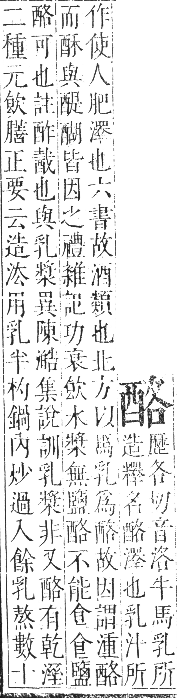 酪
歷各切音洛牛馬乳所
造釋名酪澤也乳汁所
作使人肥澤也六書故酒類也北方以馬乳爲酪故因謂湩酪
而酥與醍醐皆因之禮雜記功衰飲水漿無鹽酪不能食食鹽
酪可也註酢酨也與乳漿異陳澔集說訓乳漿非又酪有乾溼
二種元飲膳正要云造㳒用乳半杓鍋內炒過入餘乳熬數十